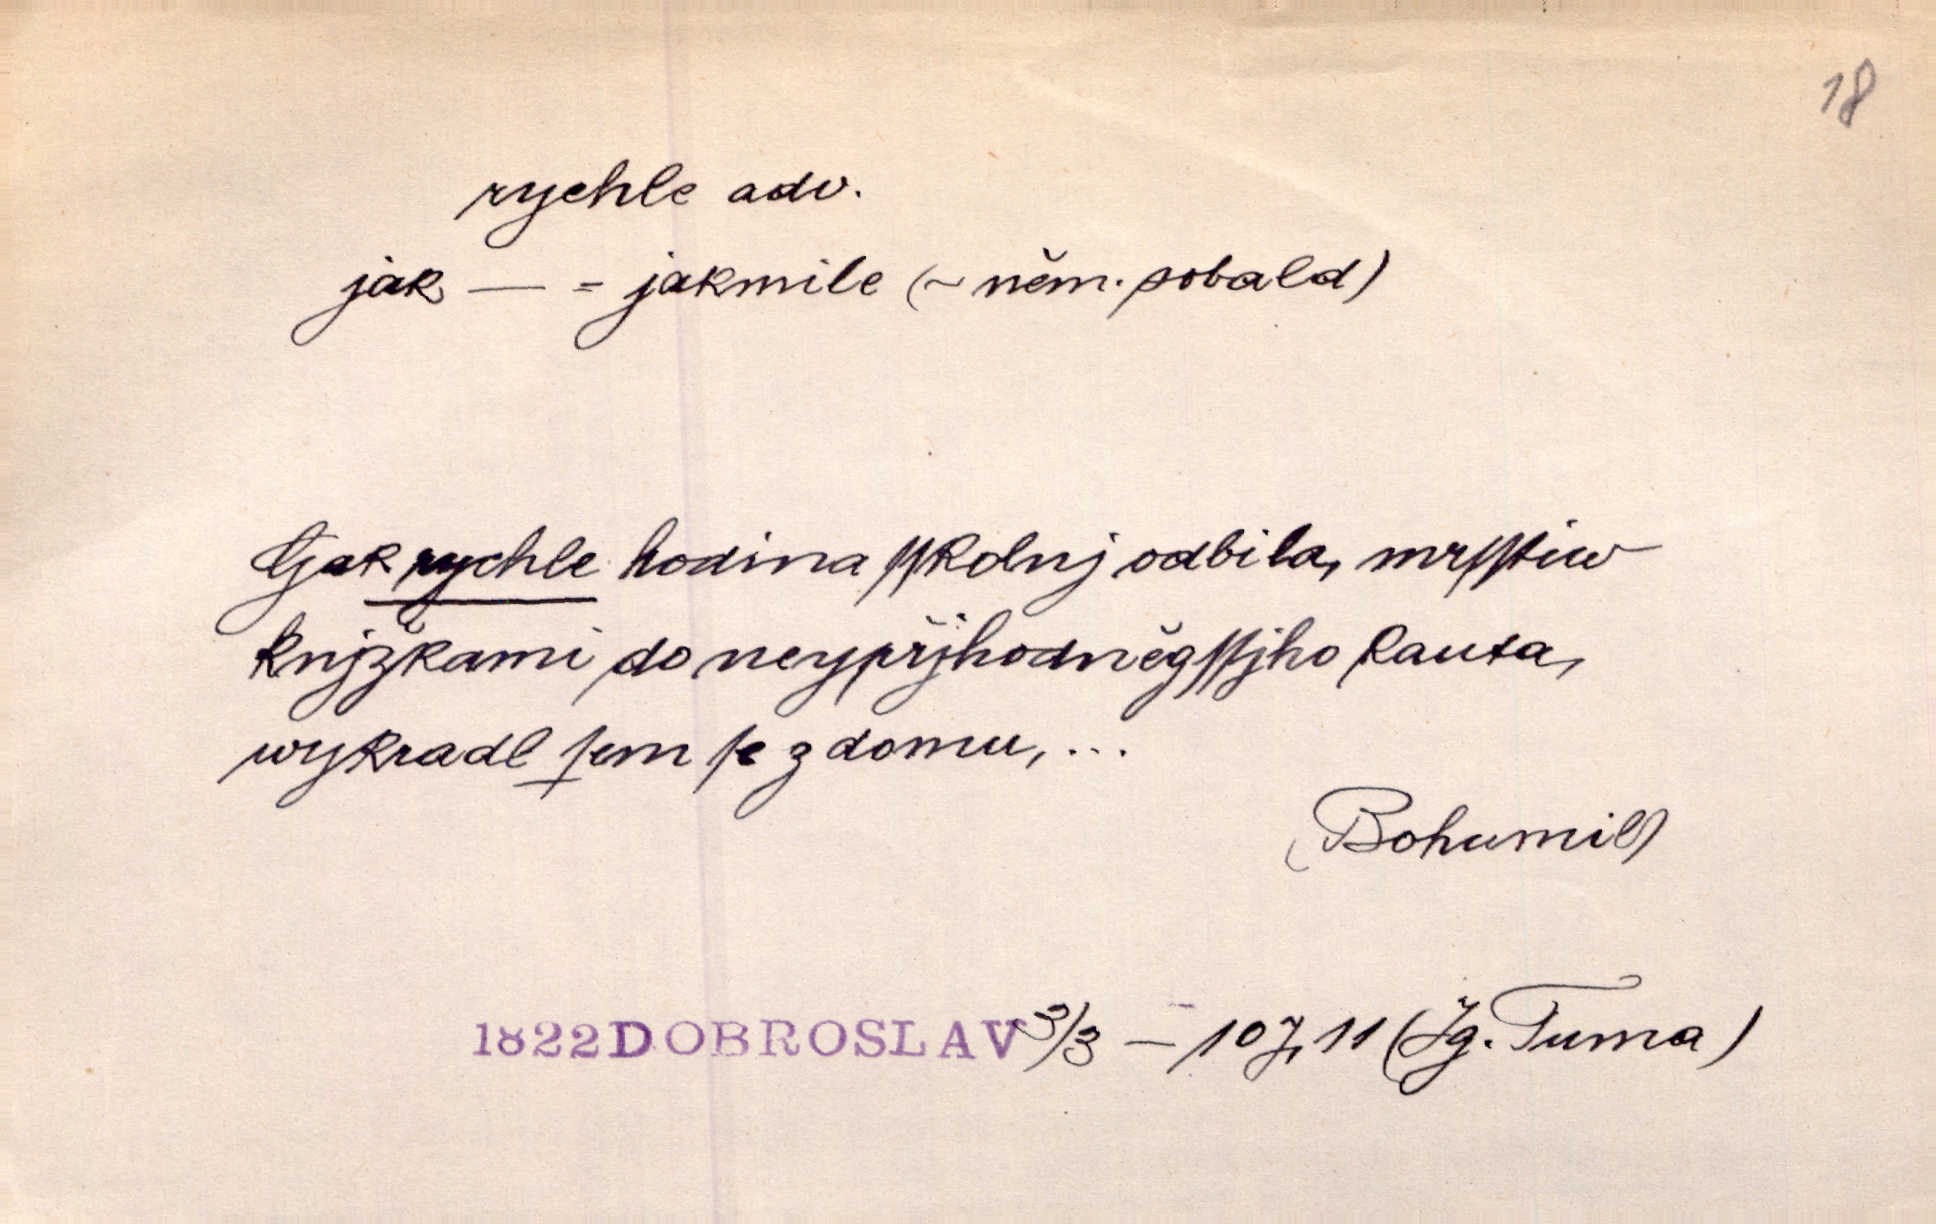 18
rychle adv.
jak — = jakmile (~ něm. sobald)
Gak rychle hodina sskolnj odbila, mrsstiw
knjžkami do neypřjhodněgssjho kauta,
wykradl sem se z domu, ...
(Bohumil)
1822 DOBROSLAV 3/3 – 107, 11 (Jg. Tuma)